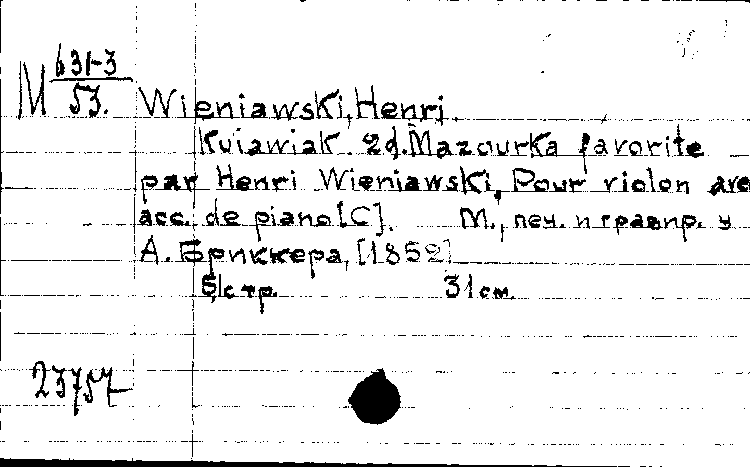 М 631-3
53.
Wieniawski, Henri.
Kuiawiak. 2d. Mazourka favorite
par Henri Wieniawski, Pour violon ave
acc. de piano [C]. М., печ. и гравир. у
А. Бриккера, [1852]
5 стр. 31 см.
23757